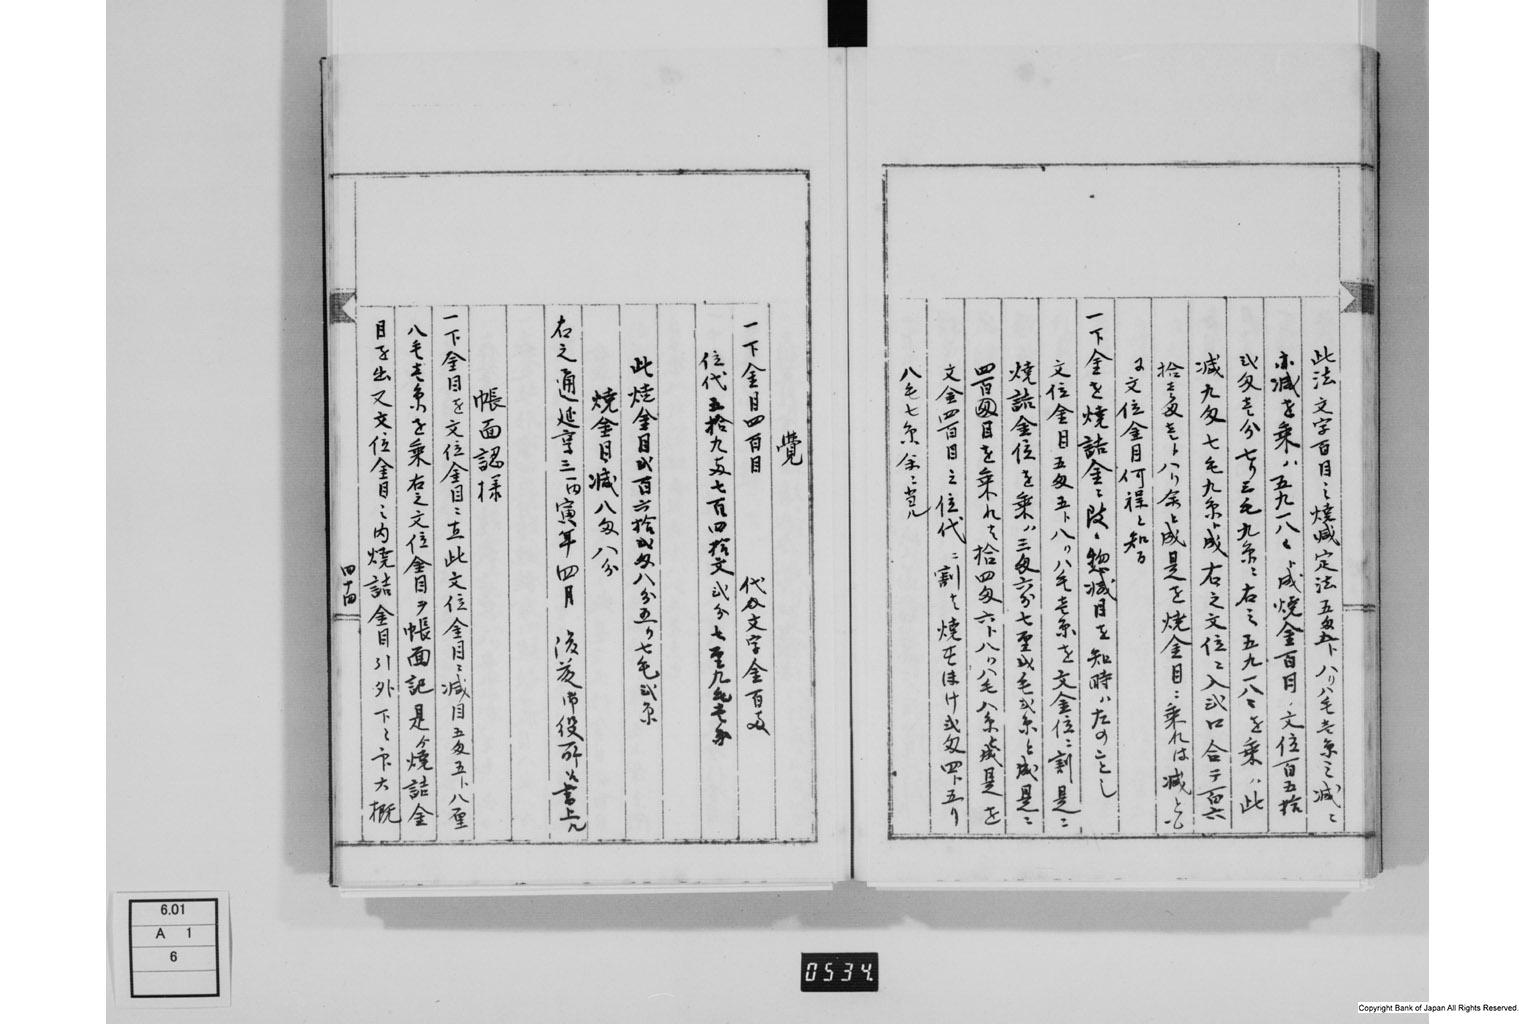 此法文字百目ニ焼減定法五匁五卜八リ八毛壱糸ニ減ニ
亦減を乗ハ五九一八ト成焼金百目ノ文位百五拾
弐匁壱分七り三毛九糸ニ右ニ五九一八を乗ハ此
減九匁七毛九糸ト成右之文位ニ入弐口合テ百六
拾壱匁壱卜八リ余と成是を焼金目ニ乗れは減とも
文位金目何程と知る
一下金を焼詰金ニ惣減目を知時ハ左のことし
文位金目五匁五卜八リ八毛壱糸を文金位ニ割是ニ
焼詰金位を乗ハ三匁六分七厘弐毛弐糸と成是ニ
四百匁目を乗れは拾四匁六卜八リ八毛八糸と成是を
文金四百目之位代ニ割は焼弐匁四卜五り
八毛七糸余ニ当ル
覚
一下金目四百目 代 文字金百両
位代五拾九両七百四拾文弐分七厘九毛壱糸
此焼金目弐百六拾弐匁八分五り七毛弐糸
焼金目減八匁八分
右之通延享三丙寅年四月 後 御役所 書上ル
帳面認様
一下金目を文位金目ニ立此文位金目ニ減目五匁五卜八厘
八毛壱糸を乗右之文位金目ヲ帳面記是焼詰金
目を出又文位金目之内焼詰金目引外下ニ大概
四十四
6.01
A 1
6
0534
Copyright Bank of Japan All Rights Reserved.